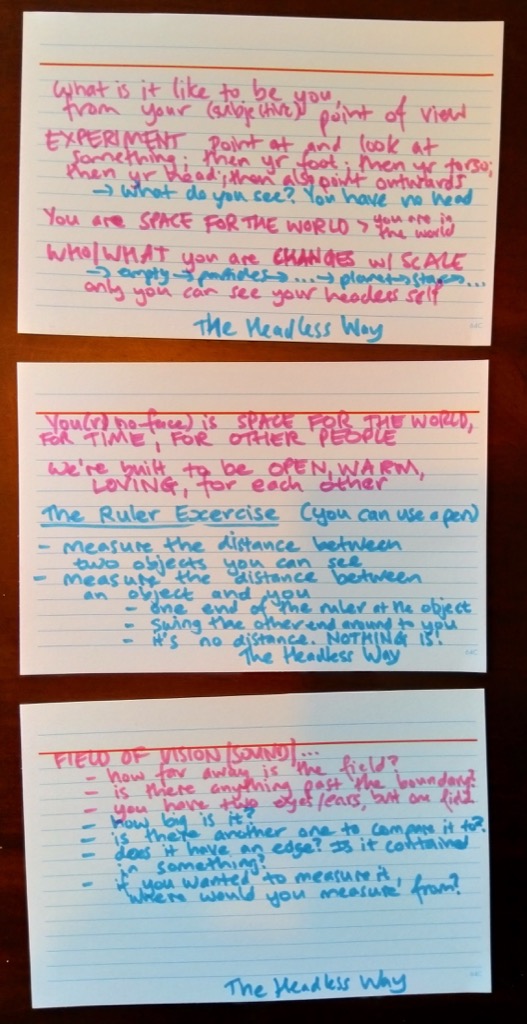 What is it like to be you
from your (subjective) point of view
EXPERIMENT point at and look at
something; then yr foot; then yr torso;
then yr head; then also point outwards
→ what do you see? You have no head
You are SPACE FOR THE WORLD > you are in
the world
WHO/WHAT you are CHANGES w/ SCALE
→ empty → particles → ... → planet → stars → ...
only you can see your headless self
The Headless Way
You(r) no-face) is SPACE FOR THE WORLD,
FOR TIME, FOR OTHER PEOPLE
We're built to be OPEN, WARM,
LOVING, for each other
The Ruler Excercise (you can use a pen)
- measure the distance between
two objects you can see
- measure the distance between
an object and you
- one end of the ruler at the object
- swing the other end around to you
- it's no distance. NOTHING IS!
The Headless Way
FIELD OF VISION/SOUND/...
- how far away is the field?
- is there anything past the boundary?
- you have two eyes/ears, but one field
- How big is it?
- is there another one to compare it to?
- does it have an edge? Is it contained
in something?
- if you wanted to measure it,
where would you measure from?
The Headless Way